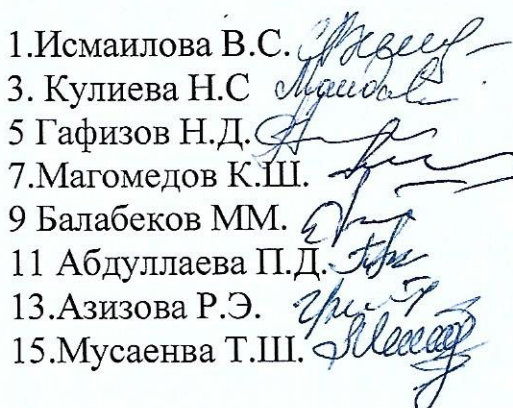 1.Исмаилова В.С.
3. Кулиева Н.С
5 Гафизов Н.Д.
7.Магомедов К.Ш.
9 Балабеков ММ.
11 Абдуллаева П.Д.
13.Азизова Р.Э.
15.Мусаенва Т.Ш.